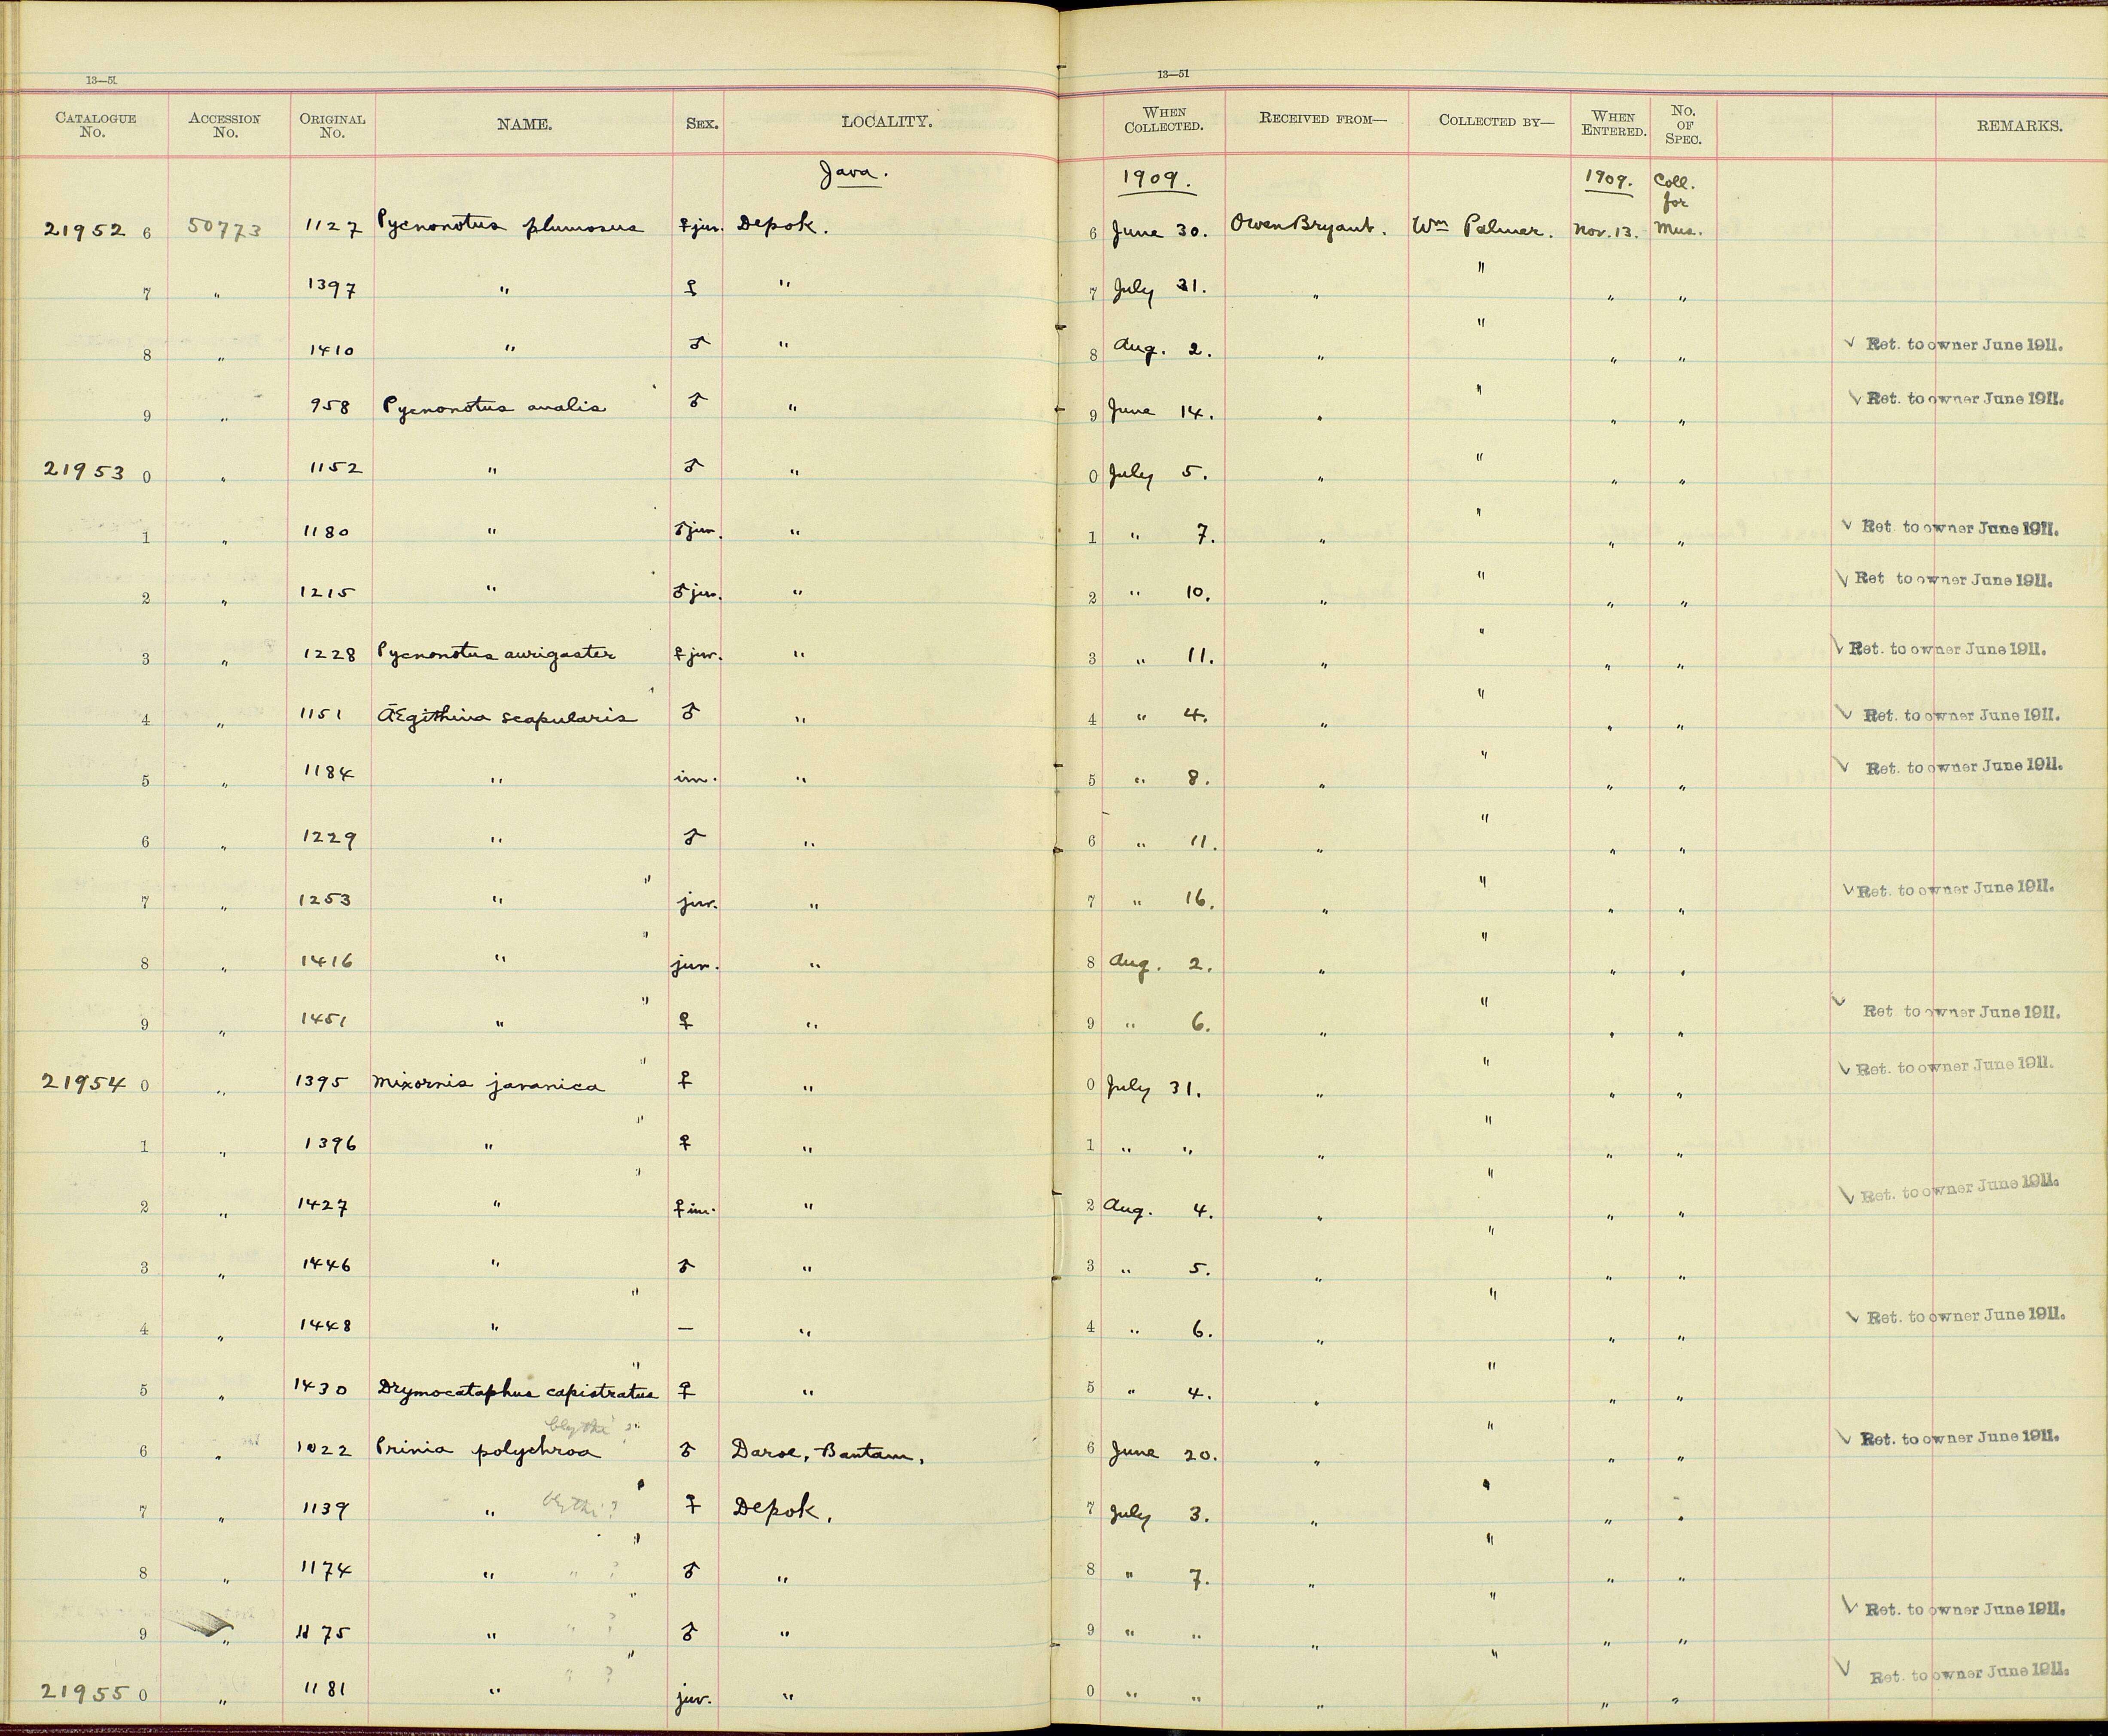 13—51
13—51
CATALOGUE No. ACCESSION No. ORIGINAL No. NAME. SEX. LOCALITY. WHEN COLLECTED. RECEIVED FROM— COLLECTED BY— WHEN ENTERED. No. OF SPEC. REMARKS.
Java. 1909. 1909. Coll. for
21952 6 50773 1127 Pycnonotus plumosus ♀ juv. Depok. 6 June 30. Owen Bryant. Wm Palmer. Nov. 13. Mus.
7 " 1397 " ♀ " 7 July 31. " " " "
8 " 1410 " ♂ " 8 Aug. 2. " " " " √ Ret. to owner June 1911.
9 " 958 Pycnonotus analis ♂ " 9 June 14. " " " " √ Ret. to owner June 1911.
21953 0 " 1152 " ♂ " 0 July 5. " " " "
1 " 1180 " ♂ juv. " 1 " 7. " " " " √ Ret. to owner June 1911.
2 " 1215 " ♂ juv. " 2 " 10. " " " " √ Ret to owner June 1911.
3 " 1228 Pycnonotus aurigaster ♀ juv. " 3 " 11. " " " " √ Ret. to owner June 1911.
4 " 1151 Ægithina scapularis ♂ " 4 " 4. " " " " √ Ret. to owner June 1911.
5 " 1184 " im. " 5 " 8. " " " " √ Ret. to owner June 1911.
6 " 1229 " ♂ " 6 " 11. " " " "
7 " 1253 " juv. " 7 " 16. " " " " √ Ret. to owner June 1911.
8 " 1416 " juv. " 8 Aug. 2. " " " "
9 " 1451 " ♀ " 9 " 6. " " " " √ Ret to owner June 1911.
21954 0 " 1395 Mixornis javanica ♀ " 0 July 31. " " " " √ Ret. to owner June 1911.
1 " 1396 " ♀ " 1 " " " " " "
2 " 1427 " ♀ im. " 2 Aug. 4. " " " " √ Ret. to owner June 1911.
3 " 1446 " ♂ " 3 " 5. " " " "
4 " 1448 " — " 4 " 6. " " " " √ Ret. to owner June 1911.
5 " 1430 Drymocataphus capistratus ♀ " 5 " 4. " " " "
blythi ?
6 " 1022 Prinia polychroa ♂ Daroe, Bantam. 6 June 20. " " " " √ Ret. to owner June 1911.
7 " 1139 " blythi ? ♀ Depok. 7 July 3. " " " "
8 " 1174 " " ? ♂ " 8 " 7. " " " "
9 " 1175 " " ? ♂ " 9 " " " " " " √ Ret. to owner June 1911.
21955 0 " 1181 " " ? juv. " 0 " " " " " " √ Ret. to owner June 1911.